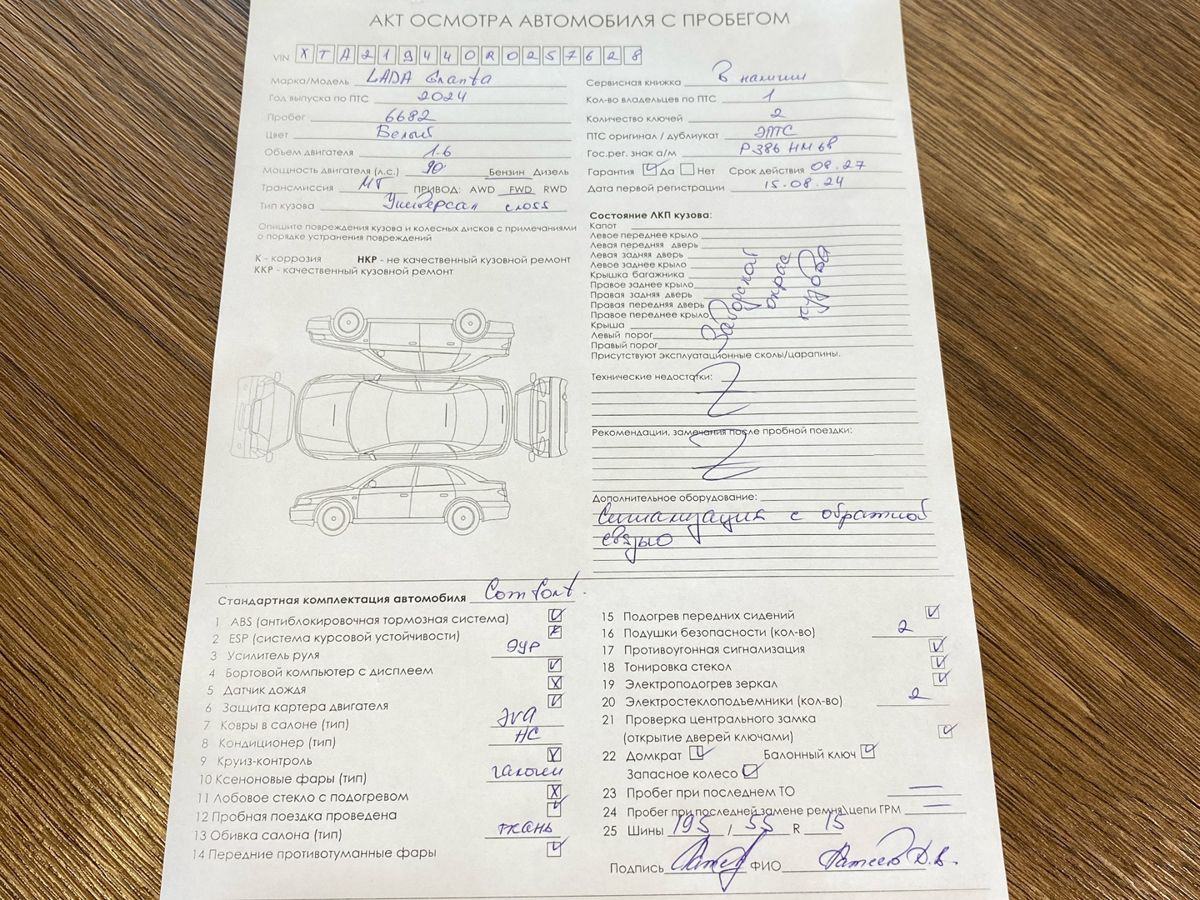 АКТ ОСМОТРА АВТОМОБИЛЯ С ПРОБЕГОМ
VIN XTA219440R0257628
Марка/Модель LADA Granta
Год выпуска по ПТС 2024
Пробег 6682
Цвет Белый
Объем двигателя 1.6
Мощность двигателя (л.с.) 90 Бензин Дизель
Трансмиссия МТ ПРИВОД: AWD FWD RWD
Тип кузова Универсал cross
Опишите повреждения кузова и колесных дисков с примечаниями
о порядке устранения повреждений
К - коррозия НКР - не качественный кузовной ремонт
ККР - качественный кузовной ремонт
Сервисная книжка В наличии
Кол-во владельцев по ПТС 1
Количество ключей 2
ПТС оригинал / дубликат ЭПТС
Гос.рег. знак а/м Р386НМ68
Гарантия Да Нет Срок действия 08.27
Дата первой регистрации 15.08.24
Состояние ЛКП кузова:
Капот
Левое переднее крыло
Левая передняя дверь
Левая задняя дверь
Левое заднее крыло
Крышка багажника
Правое заднее крыло
Правая задняя дверь
Правая передняя дверь
Правое переднее крыло
Крыша
Левый порог
Правый порог
Заводской
окрас
кузова
Присутствуют эксплуатационные сколы/царапины.
Технические недостатки:
Рекомендации, замечания после пробной поездки:
Дополнительное оборудование:
Сигнализация с обратной
связью
Стандартная комплектация автомобиля Comfort.
1 ABS (антиблокировочная тормозная система)
2 ESP (система курсовой устойчивости)
3 Усилитель руля ЭУР
4 Бортовой компьютер с дисплеем
5 Датчик дождя
6 Защита картера двигателя
7 Ковры в салоне (тип) ЭВА
8 Кондиционер (тип) НС
9 Круиз-контроль
10 Ксеноновые фары (тип) галоген
11 Лобовое стекло с подогревом
12 Пробная поездка проведена
13 Обивка салона (тип) ткань
14 Передние противотуманные фары
15 Подогрев передних сидений
16 Подушки безопасности (кол-во) 2
17 Противоугонная сигнализация
18 Тонировка стекол
19 Электроподогрев зеркал
20 Электростеклоподъемники (кол-во) 2
21 Проверка центрального замка
(открытие дверей ключами)
22 Домкрат Балонный ключ
Запасное колесо
23 Пробег при последнем ТО —
24 Пробег при последней замене ремня\цепи ГРМ —
25 Шины 195 / 55 R 15
Подпись ФИО Д.В.